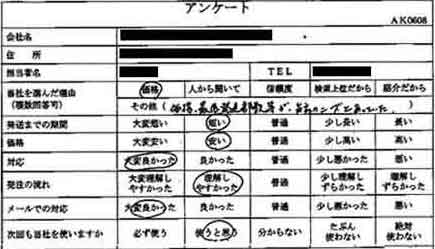 アンケート
AK0608
会社名
住 所
担当者名 TEL
当社を選んだ理由 (複数回答可) 価格 人から聞いて 信頼度 検索上位だから 部分だから
その他 ( 価格、 )
発送までの期間 大変短い 短い 普通 少し長い 長い
価格 大変安い 安い 普通 少し高い 高い
対応 大変良かった 良かった 普通 少し悪かった 悪い
発注の流れ 大変理解しやすかった 理解しやすかった 普通 少し理解しずらかった 理解しずらかった
メールでの対応 大変良かった 良かった 普通 少し悪かった 悪い
次回も当社を使いますか 必ず使う 使うと思う 分からない たぶん使わない 絶対使わない